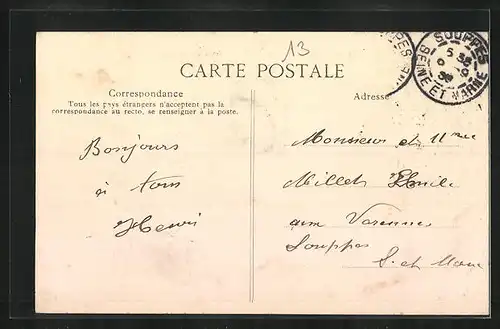 13
CARTE POSTALE
Correspondance
Tous les pays étrangers n'acceptent pas la
correspondance au recto, se renseigner à la poste.
Bonjours
à tous
Henri
Adresse
SOUPPES
SEINE ET MARNE
Monsieur et Mme
Millet Emile
aux Varennes
Souppes
S. et Marne